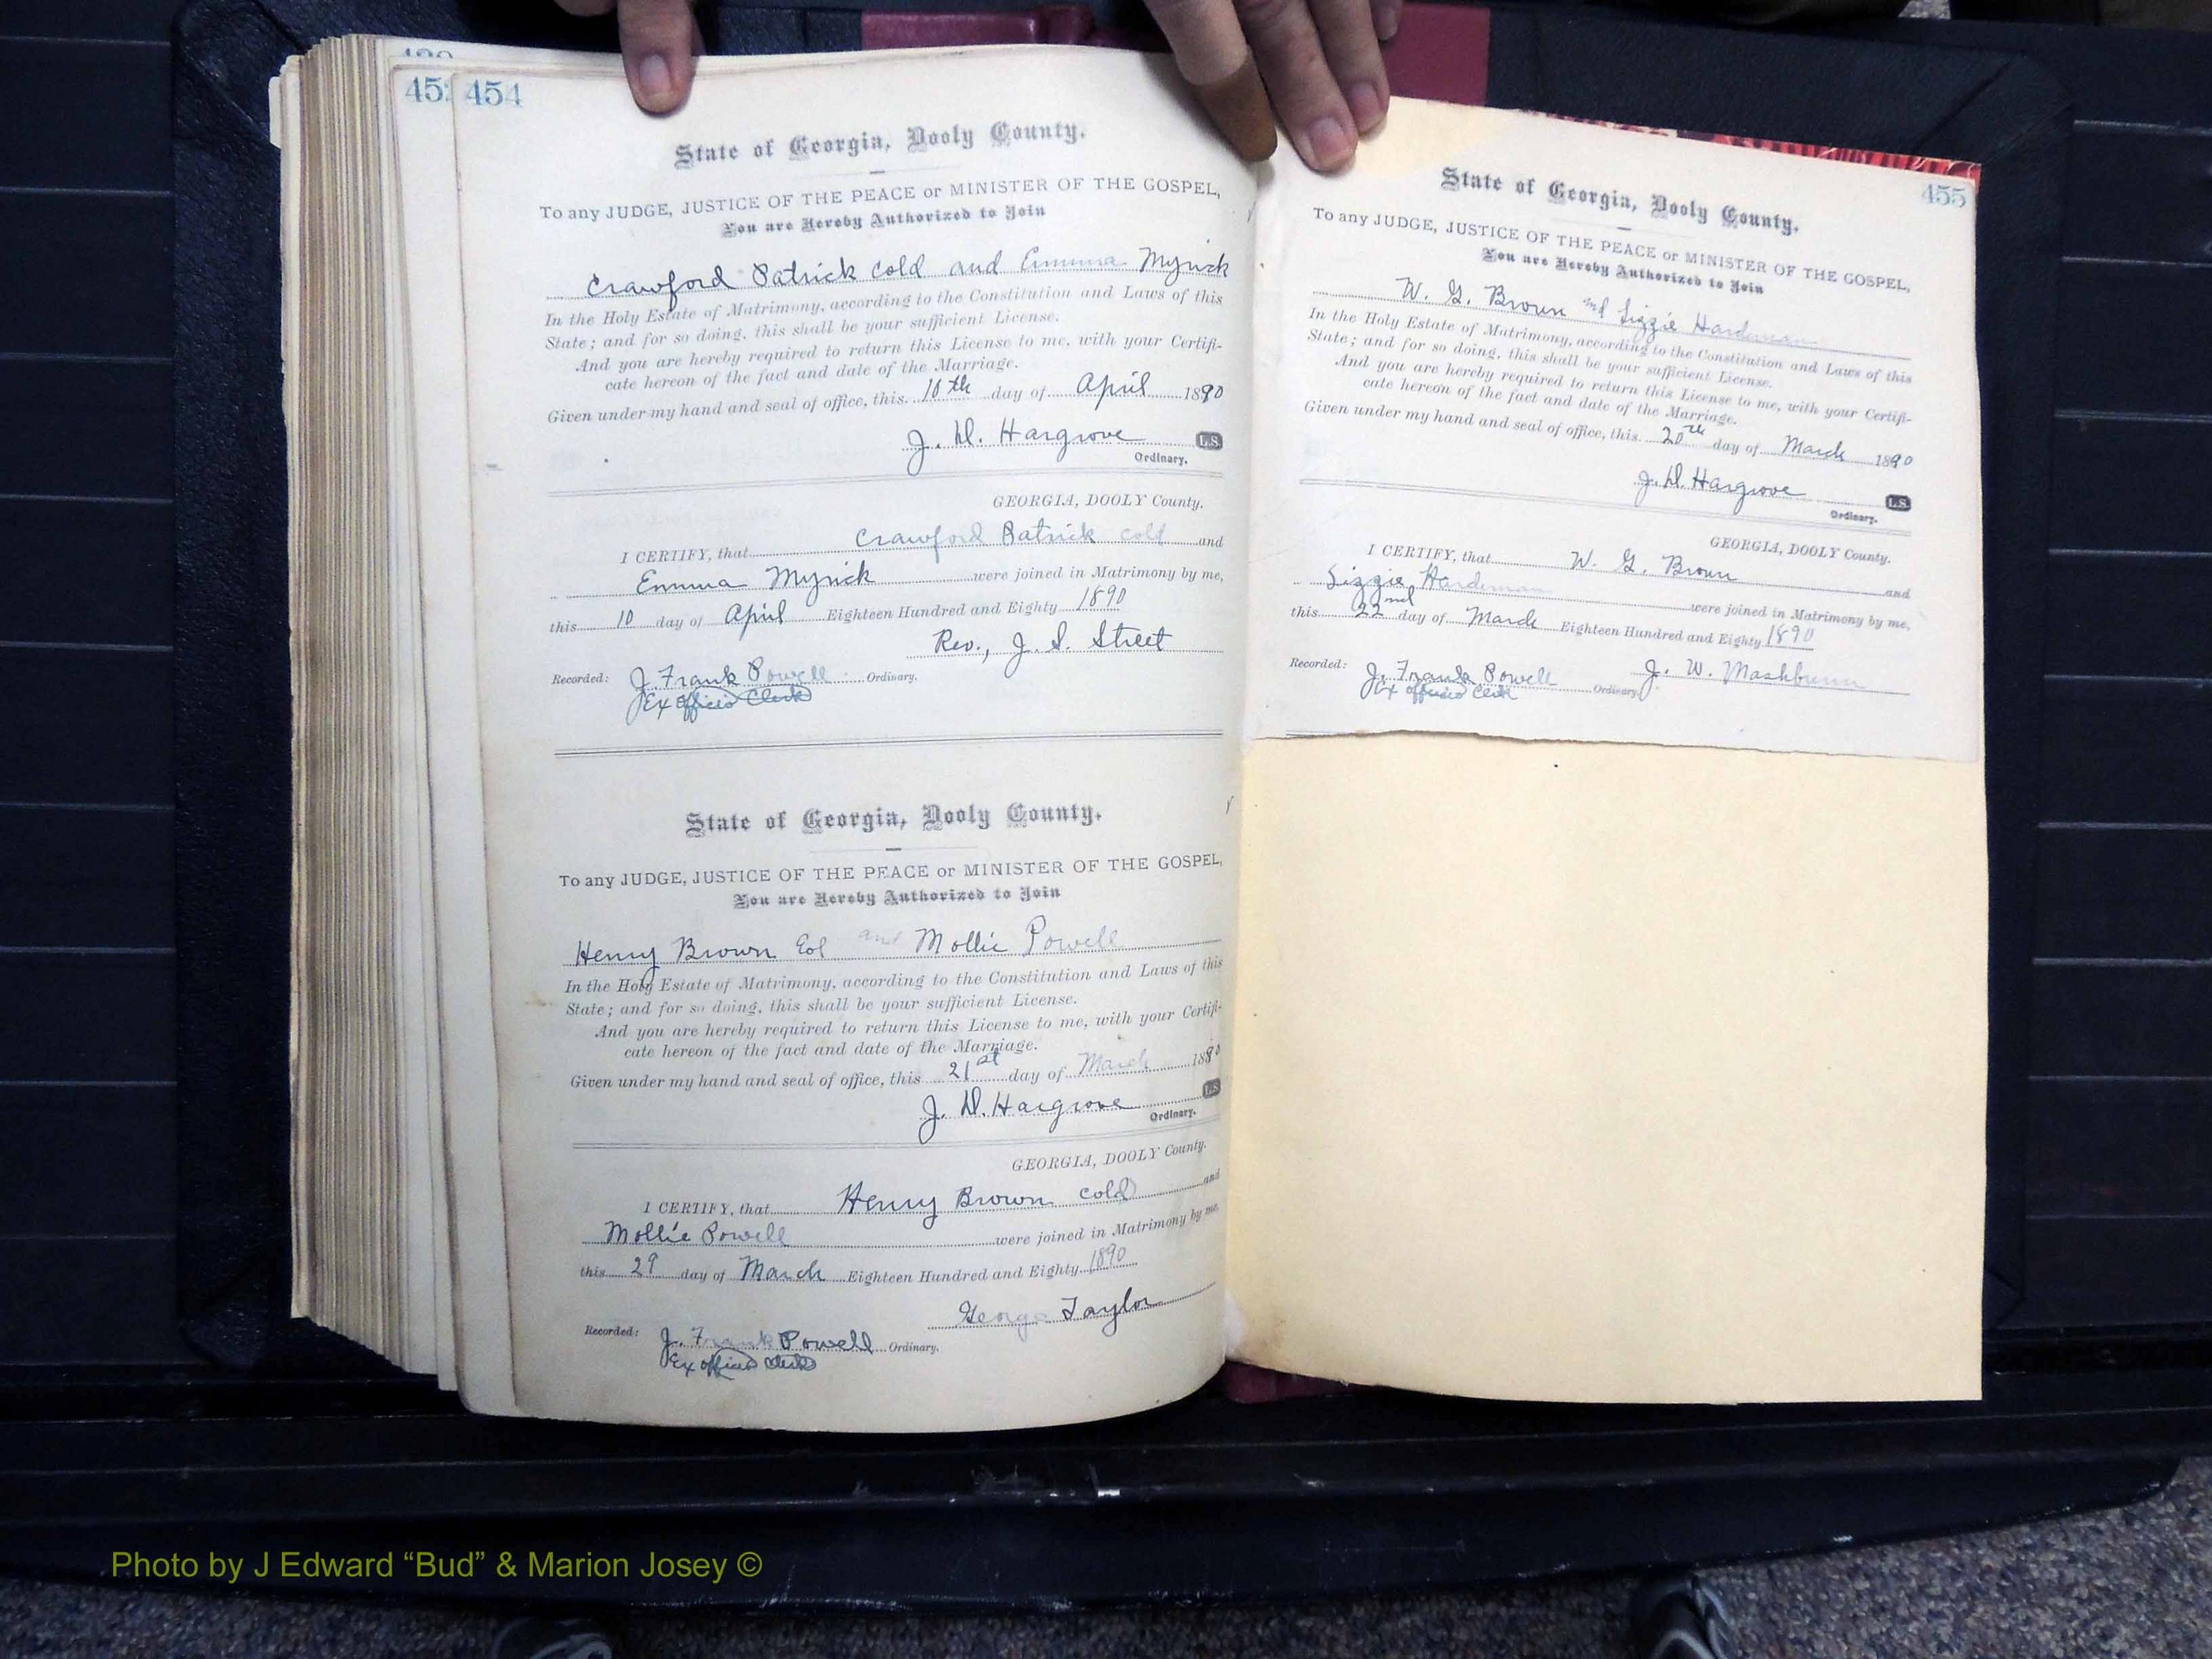 454
State of Georgia, Dooly County.
To any JUDGE, JUSTICE OF THE PEACE or MINISTER OF THE GOSPEL,
You are Hereby Authorized to Join
Crawford Patrick cold and Emma Myrick
In the Holy Estate of Matrimony, according to the Constitution and Laws of this
State; and for so doing, this shall be your sufficient License.
And you are hereby required to return this License to me, with your Certifi-
cate hereon of the fact and date of the Marriage.
Given under my hand and seal of office, this 10th day of April 1890
J. D. Hargrove L.S.
Ordinary.
GEORGIA, DOOLY County.
I CERTIFY, that Crawford Patrick cold and
Emma Myrick were joined in Matrimony by me,
this 10 day of April Eighteen Hundred and Eighty 1890
Rev., J. S. Street
Recorded: J. Frank Powell Ordinary.
Ex officio Clerk
State of Georgia, Dooly County.
To any JUDGE, JUSTICE OF THE PEACE or MINISTER OF THE GOSPEL,
You are Hereby Authorized to Join
Henry Brown Col and Mollie Powell
In the Holy Estate of Matrimony, according to the Constitution and Laws of this
State; and for so doing, this shall be your sufficient License.
And you are hereby required to return this License to me, with your Certifi-
cate hereon of the fact and date of the Marriage.
Given under my hand and seal of office, this 21st day of March 1890
J. D. Hargrove L.S.
Ordinary.
GEORGIA, DOOLY County.
I CERTIFY, that Henry Brown cold and
Mollie Powell were joined in Matrimony by me,
this 29 day of March Eighteen Hundred and Eighty 1890
George Taylor
Recorded: J. Frank Powell Ordinary.
Ex officio Clerk
455
State of Georgia, Dooly County.
To any JUDGE, JUSTICE OF THE PEACE or MINISTER OF THE GOSPEL,
You are Hereby Authorized to Join
W. G. Brown and Lizzie Hardeman
In the Holy Estate of Matrimony, according to the Constitution and Laws of this
State; and for so doing, this shall be your sufficient License.
And you are hereby required to return this License to me, with your Certifi-
cate hereon of the fact and date of the Marriage.
Given under my hand and seal of office, this 20th day of March 1890
J. D. Hargrove L.S.
Ordinary.
GEORGIA, DOOLY County.
I CERTIFY, that W. G. Brown and
Lizzie Hardeman were joined in Matrimony by me,
this 22nd day of March Eighteen Hundred and Eighty 1890
J. W. Mashburn
Recorded: J. Frank Powell Ordinary.
Ex officio Clerk
Photo by J Edward “Bud” & Marion Josey ©